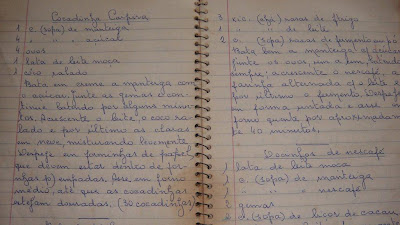 Cocadinha Caipira
1 c. (sopa) de manteiga
4 " " açúcar
4 ovos
1 lata de leite moça
1 côco ralado
Bata em creme a manteiga com
o açúcar, junte as gemas e con-
tinue batendo por alguns minu-
tos. Acrescente o leite, o côco ra-
lado e por último as claras
em neve, misturando levemente.
Despeje em forminhas de papel,
que devem estar dentro de for-
minhas p/ empadas. Asse em forno
médio, até que as cocadinhas
estejam douradas. (30 cocadinhas)
3 xic. (chá) rasas de farinha de trigo
1 " " de leite
2 c. (sopa) rasas de fermento em pó
Bata bem a manteiga c/ açúcar
junte os ovos, um a um, batendo
sempre; acrescente o nescafé, a
farinha alternando c/ o leite e
por último o fermento. Despeje
em forma untada e asse em
forno quente por aproximadamen-
te 40 minutos.
Docinhos de nescafé
1 lata de leite moça
1 c. (sopa) de manteiga
1 " " nescafé
2 gemas
2 c. (sopa) de licor de cacau